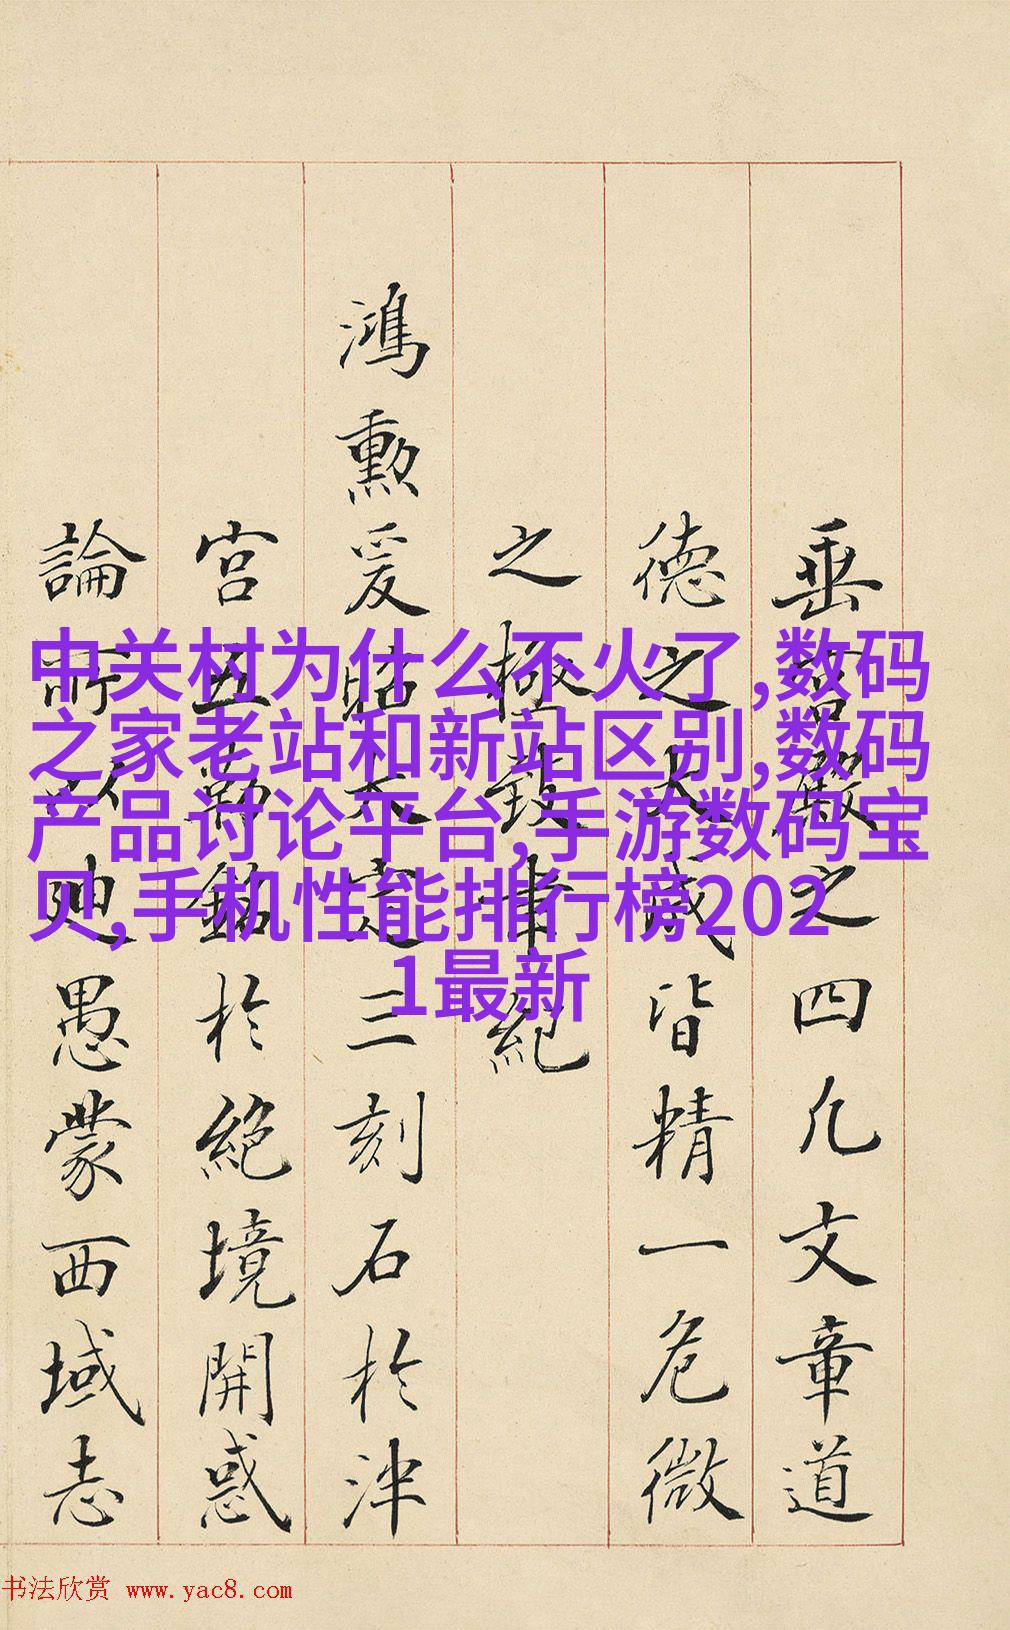 垂四几文章道
德之大咸皆精一危微
之極致聿紀
鴻勲爰昭大定三刻石於津
宮五勒銘於絶境開惑
論所以地愚蒙西域志
中关村为什么不火了,数码
之家老站和新站区别,数码
产品讨论平台,手游数码宝
贝,手机性能排行榜202
1最新
书法欣赏 www.yac8.com